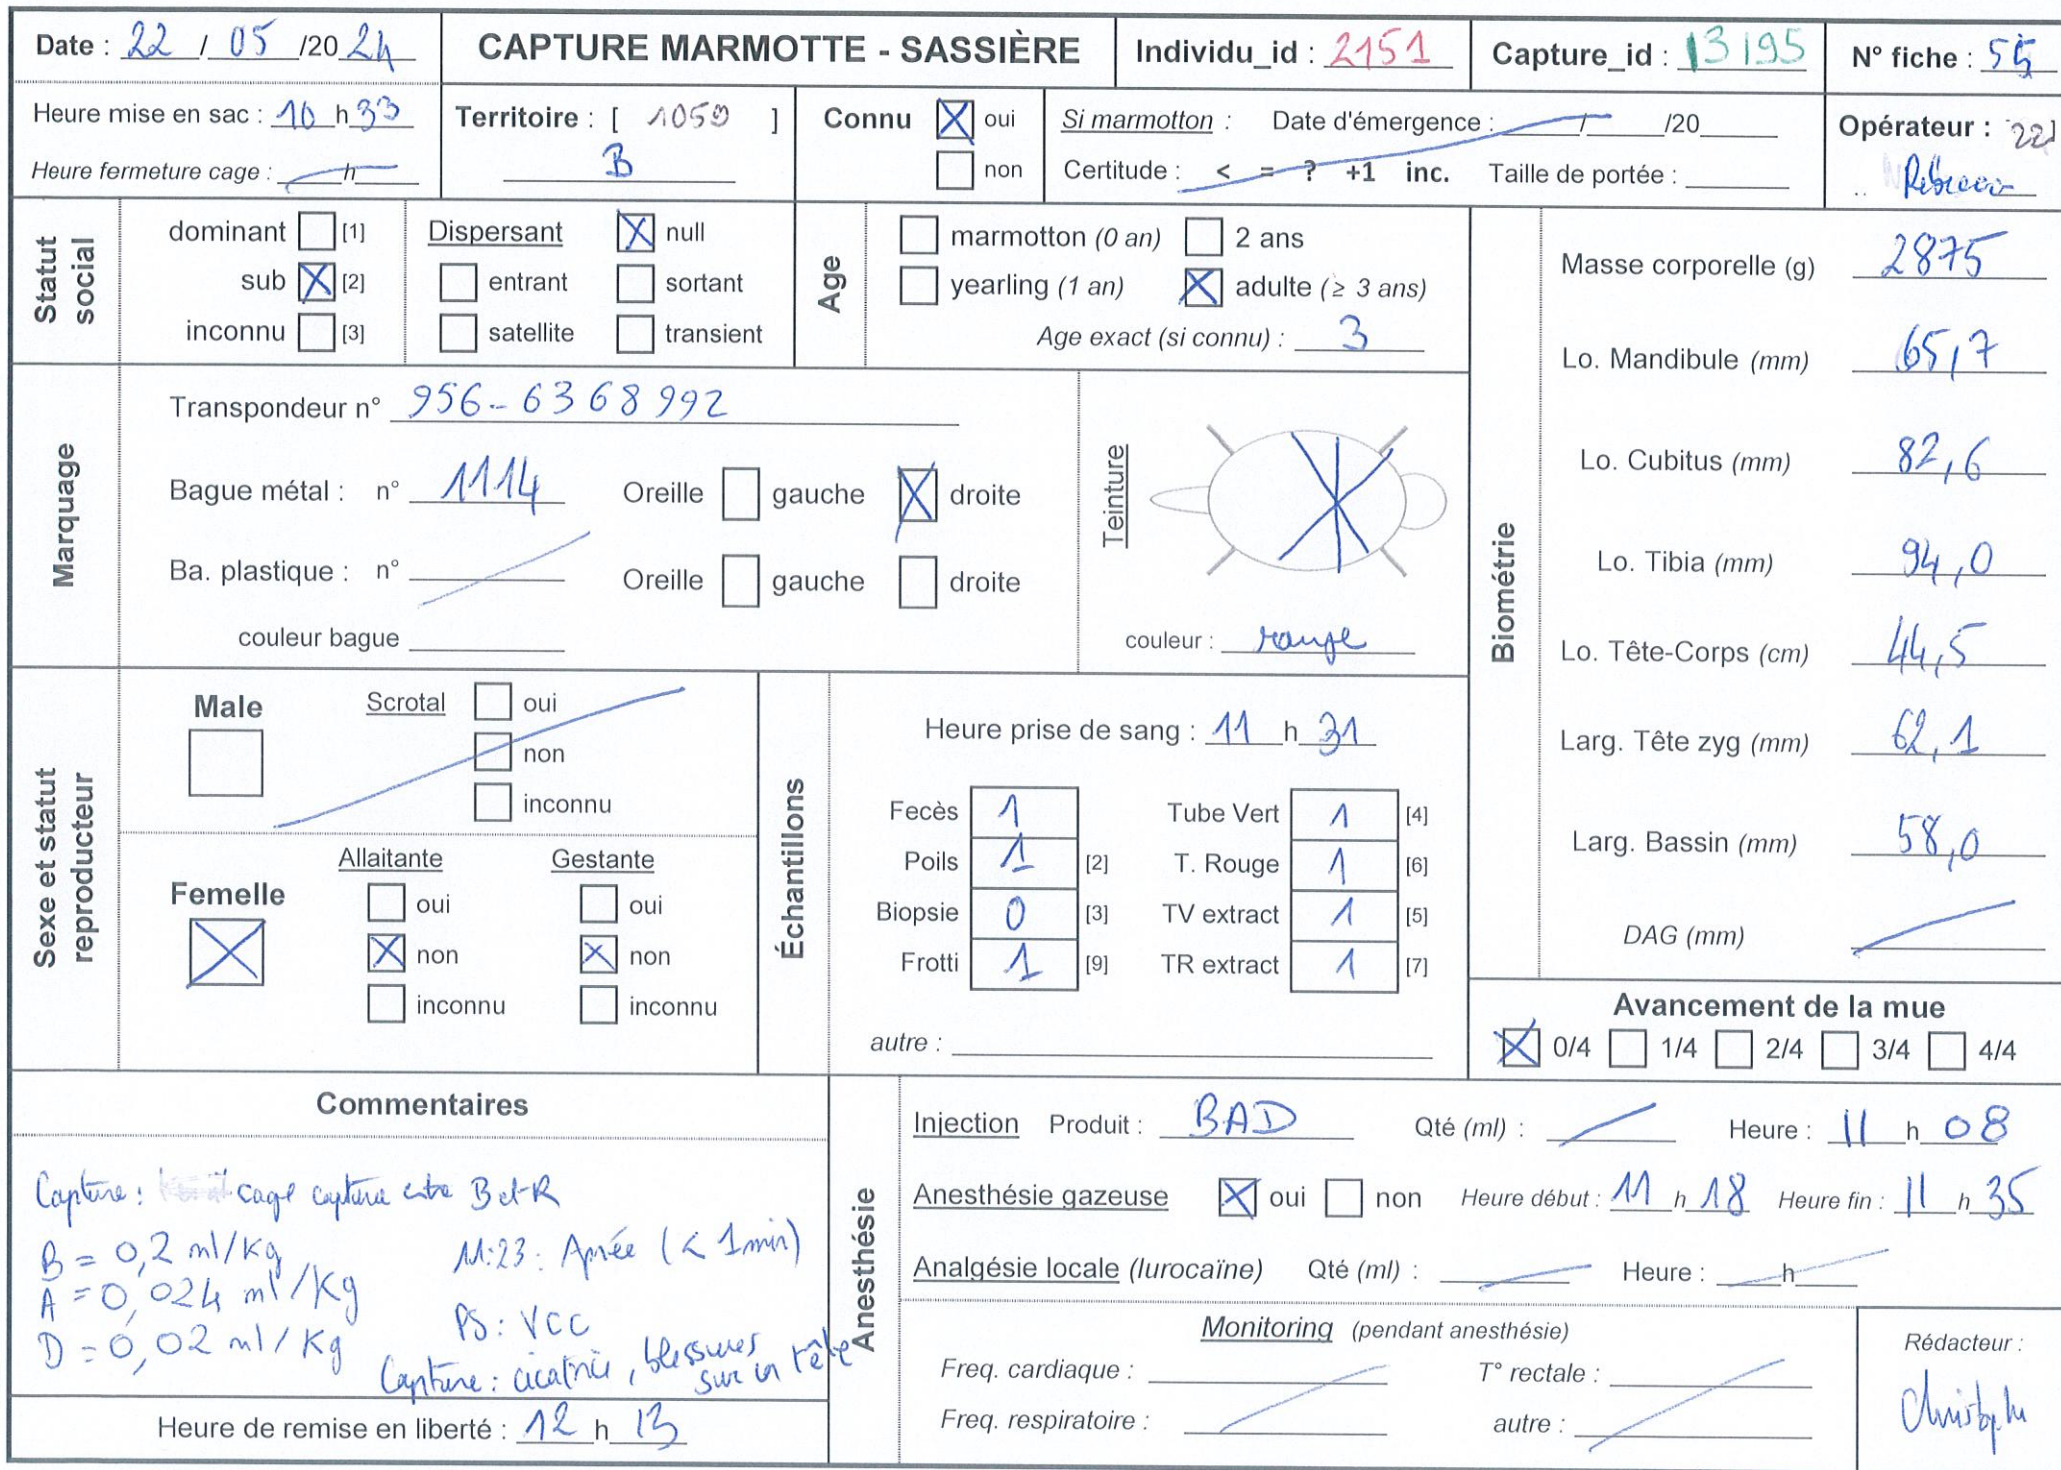 Date : 22 / 05 /20 24
CAPTURE MARMOTTE - SASSIÈRE
Individu_id : 2151
Capture_id : 13195
N° fiche : 55
Heure mise en sac : 10 h 33
Heure fermeture cage : h
Territoire : [ 1059 ]
B
Connu oui
non
Si marmotton : Date d'émergence : / /20
Certitude : < = ? +1 inc. Taille de portée :
Opérateur : 221
Rébecca
Statut social
dominant [1]
sub [2]
inconnu [3]
Dispersant null
entrant sortant
satellite transient
Age
marmotton (0 an) 2 ans
yearling (1 an) adulte (≥ 3 ans)
Age exact (si connu) : 3
Marquage
Transpondeur n° 956-6368992
Bague métal : n° 1114 Oreille gauche droite
Ba. plastique : n° Oreille gauche droite
couleur bague
Teinture
couleur : rouge
Biométrie
Masse corporelle (g) 2875
Lo. Mandibule (mm) 65,7
Lo. Cubitus (mm) 82,6
Lo. Tibia (mm) 94,0
Lo. Tête-Corps (cm) 44,5
Larg. Tête zyg (mm) 62,1
Larg. Bassin (mm) 58,0
DAG (mm)
Sexe et statut reproducteur
Male
Scrotal oui
non
inconnu
Femelle
Allaitante Gestante
oui oui
non non
inconnu inconnu
Échantillons
Heure prise de sang : 11 h 31
Fecès 1 Tube Vert 1 [4]
Poils 1 [2] T. Rouge 1 [6]
Biopsie 0 [3] TV extract 1 [5]
Frotti 1 [9] TR extract 1 [7]
autre :
Avancement de la mue
0/4 1/4 2/4 3/4 4/4
Commentaires
Capture : cage capture entre B et R
B = 0,2 ml/kg
A = 0,024 ml/Kg
D = 0,02 ml/Kg
11:23 : Apnée (< 1min)
PS : VCC
Capture : cicatrice, blessures
sur la tête
Heure de remise en liberté : 12 h 13
Anesthésie
Injection Produit : BAD Qté (ml) : Heure : 11 h 08
Anesthésie gazeuse oui non Heure début : 11 h 18 Heure fin : 11 h 35
Analgésie locale (lurocaïne) Qté (ml) : Heure : h
Monitoring (pendant anesthésie)
Freq. cardiaque : T° rectale :
Freq. respiratoire : autre :
Rédacteur :
Christophe